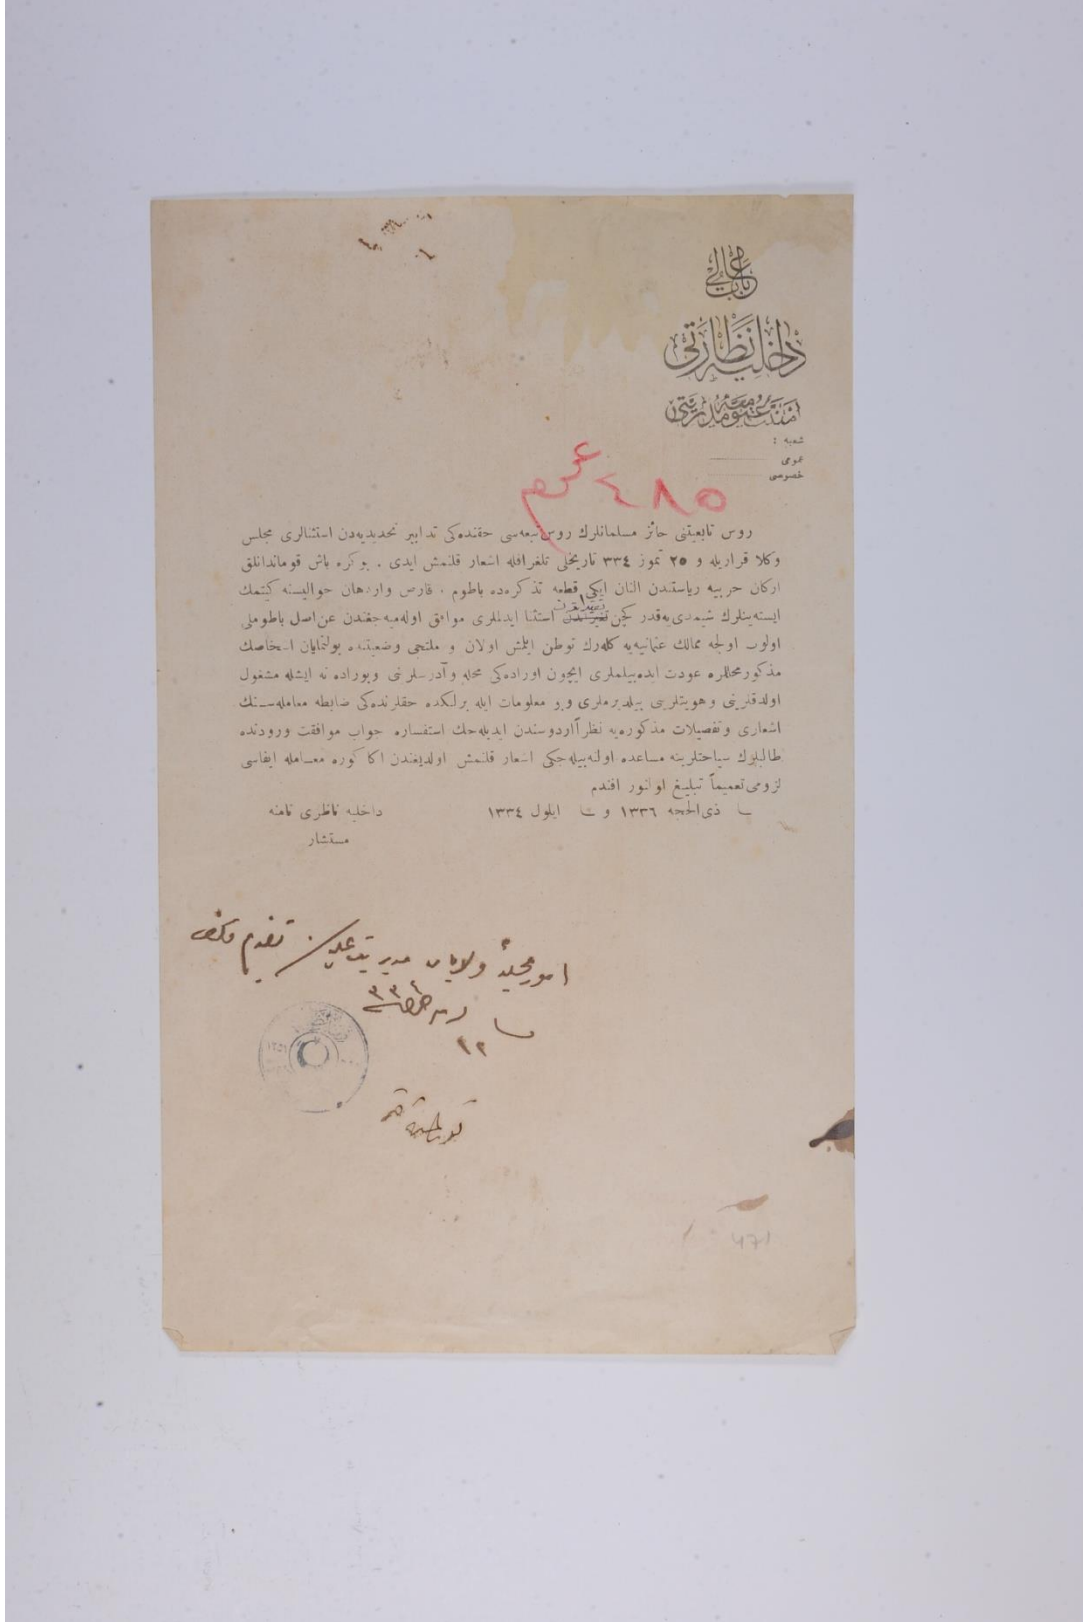 باب عالی
داخلیه نظارتی
امنیت عمومیه مدیریتی
شعبه :
عمومی
خصوصی
٤٨٥
روس تابعیتنی حائز مسلمانلرك روس تبعه‌سی حقنده‌کی تدابیر تحدیدیه‌دن استثنالری مجلس
وکلا قراریله و ٢٥ تموز ٣٣٤ تاریخلی تلغرافله اشعار قلنمش ایدی . بو کره باش قوماندانلق
ارکان حربیه ریاستندن النان ایکی قطعه تذکره‌ده باطوم ، قارص واردهان حوالیسنه کیتمك
ایسته‌ینلرك شیمدی‌یه قدر کچن استثنا ایدلملری موافق اوله‌میه‌جغندن عن اصل باطوملی
اولوب اولجه ممالك عثمانیه‌یه کله‌رك توطن ایلمش اولان و ملتجی وضعیتنده بولنمایان اشخاصك
مذکور محللره عودت ایده‌بیلملری ایچون اوراده‌کی محله و آدرسلرینی و بوراده نه ایشله مشغول
اولدقلرینی و هویتلرینی بیلدیرملری و بو معلومات ایله برلکده حقلرنده‌کی ضابطه معامله‌سنك
اشعاری و تفصیلات مذکوره‌یه نظراً اردوسندن ایدیله‌جك استفساره جواب موافقت ورودنده
طالبلرك سیاحتلرینه مساعده اولنه‌بیله‌جکی اشعار قلنمش اولدیغندن اکا کوره معامله ایفاسی
لزومی تعمیماً تبلیغ اولنور افندم
ذی الحجه ١٣٣٦ و ایلول ١٣٣٤
داخلیه ناظری نامنه
مستشار
امور محلیه ولایات مدیریت علیه‌سنه تقدیم
٣٣٤
١٢
471